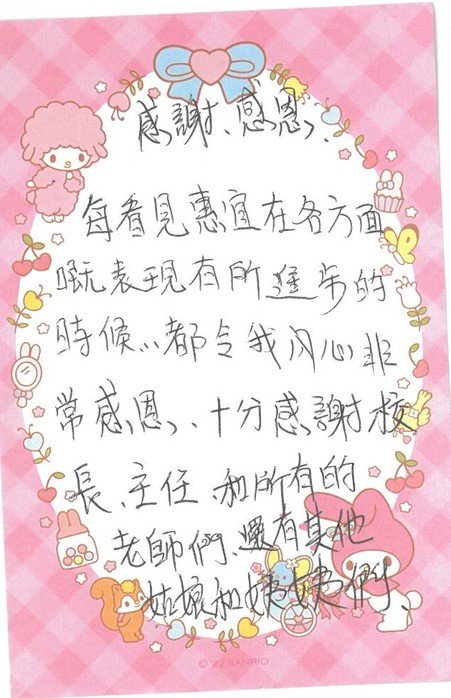 感謝、感恩、
每看見惠宜在各方面
嘅表現有所進步的
時候、、都令我內心非
常感恩、十分感謝校
長、主任 和所有的
老師們、還有其他
姑娘和姨姨們、
© '22 SANRIO